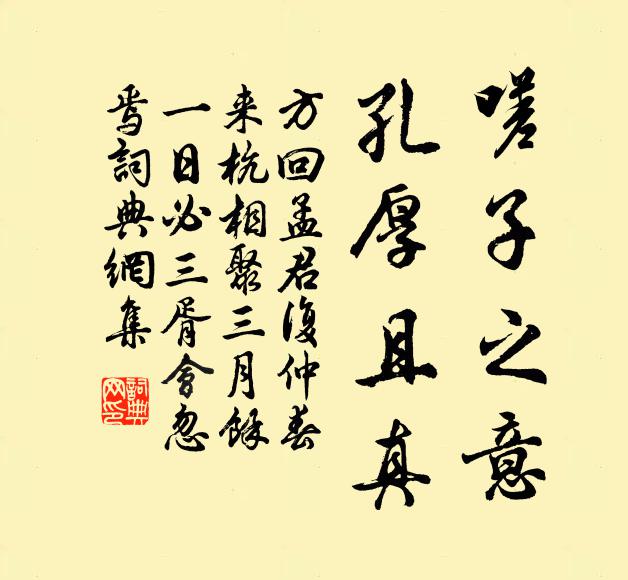 嗟子之意
孔厚且真
方回孟君復仲春
来杭相聚三月餘
一日必三胥會忽
焉詞典網集
詞典網印